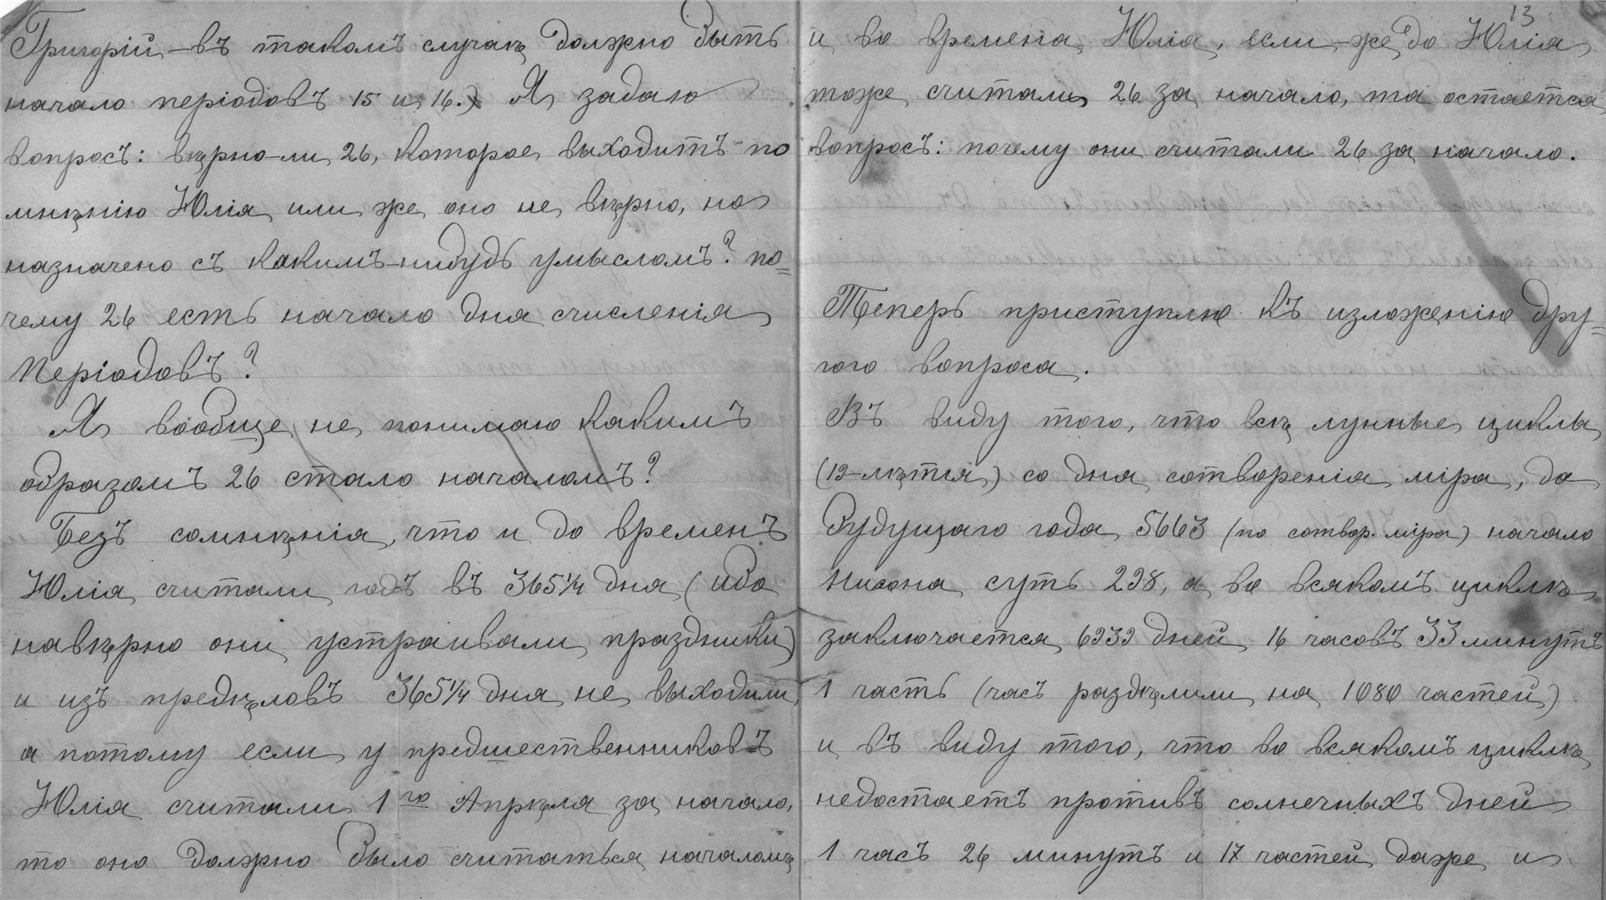 Григорій – въ такомъ случаѣ должно быть
начало періодовъ 15 и 16.) Я задаю
вопросъ: вѣрно-ли 26, которое выходитъ по
мнѣнію Юлія или же оно не вѣрно, но
назначено съ какимъ-нибудь умысломъ? по=
чему 26 есть начало дня счисленія
періодовъ?
Я вообще не понимаю какимъ
образомъ 26 стало началомъ?
Безъ сомнѣнія, что и до временъ
Юлія считали годъ въ 365 1/4 дня (ибо
навѣрно они устраивали праздники)
и изъ предѣловъ 365 1/4 дня не выходили,
а потому если у предшественниковъ
Юлія считали 1го Апрѣля за начало,
то оно должно было считаться началомъ
13
и во времена Юлія, если-же до Юлія
тоже считали 26 за начало, то остается
вопросъ: почему они считали 26 за начало.
Теперь приступлю къ изложенію дру=
гого вопроса.
Въ виду того, что всѣ лунные циклы
(19-лѣтія) со дня сотворенія міра, до
будущаго года 5663 (по сотвор. міра) начало
Нисона суть 298, а во всякомъ циклѣ
заключается 6939 дней 16 часовъ 33 минутъ
1 часть (часъ раздѣлили на 1080 частей)
и въ виду того, что во всякомъ циклѣ
недостаетъ противъ солнечныхъ дней
1 часъ 26 минутъ и 17 частей даже и